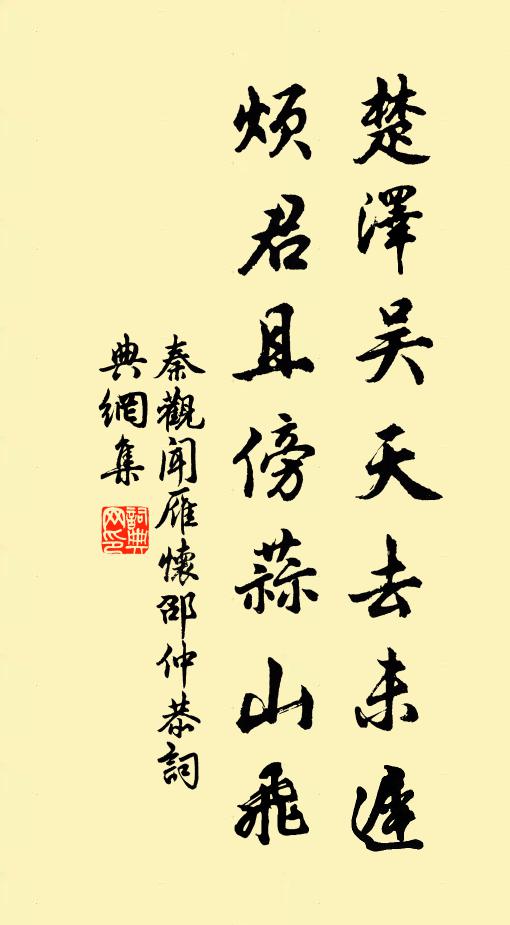 楚澤吳天去未遲
煩君且傍蒜山飛
秦觀聞雁懷邵仲恭詞
典網集
詞典網印